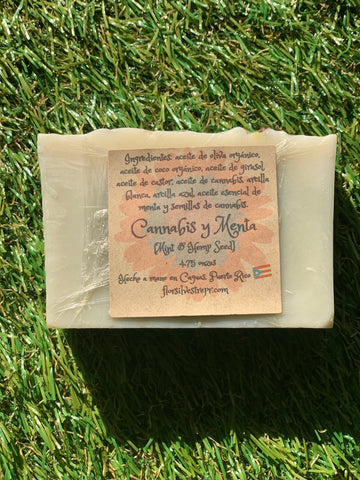 Ingredientes: aceite de oliva orgánico,
aceite de coco orgánico, aceite de girasol,
aceite de castor, aceite de cannabis, arcilla
blanca, arcilla azul, aceite esencial de
menta y semillas de cannabis.
Cannabis y Menta
(Mint & Hemp Seed)
4.75 onzas
Hecho a mano en Caguas, Puerto Rico
florsilvestrepr.com